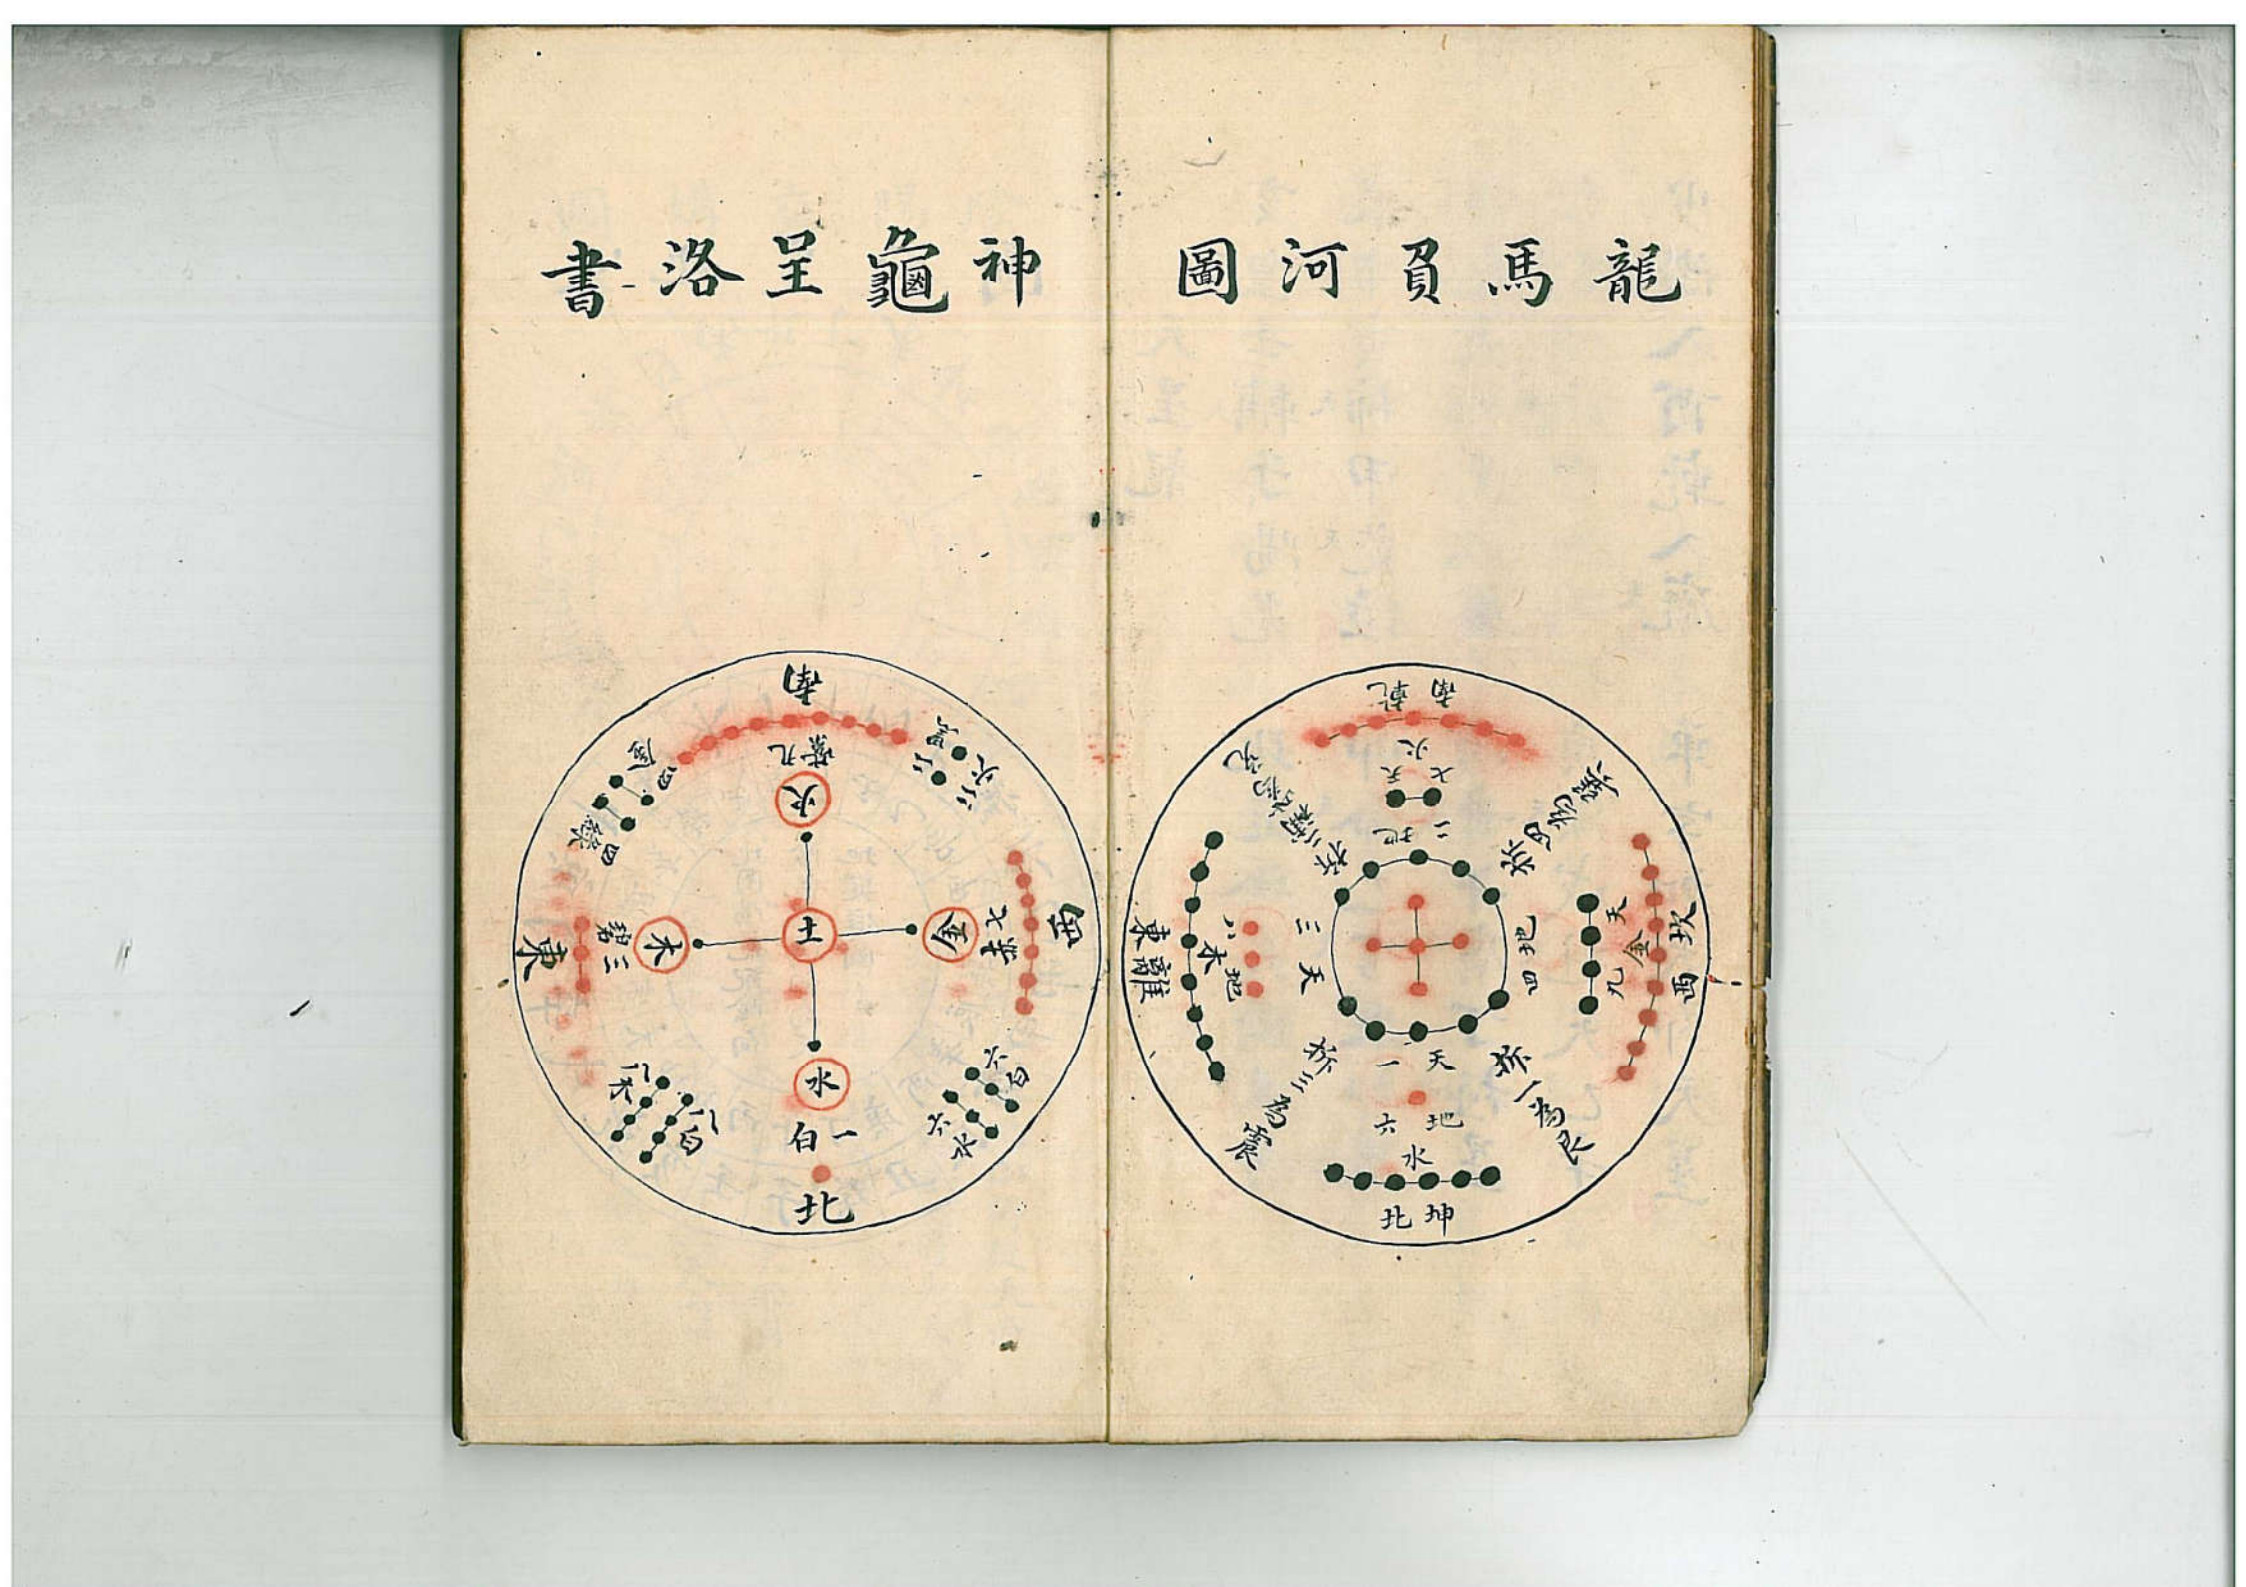 龍馬負河圖
南乾
七火天
二地
坎西
天九金
地四
東離
地八木
天三
天一
地六
水
北坤
拆三為震
拆一為艮
神龜呈洛書
南
九紫
火
西
七
金
土
木
三碧
東
四金
四綠
二黑
二火
六白
六水
八木
八白
水
一白
北